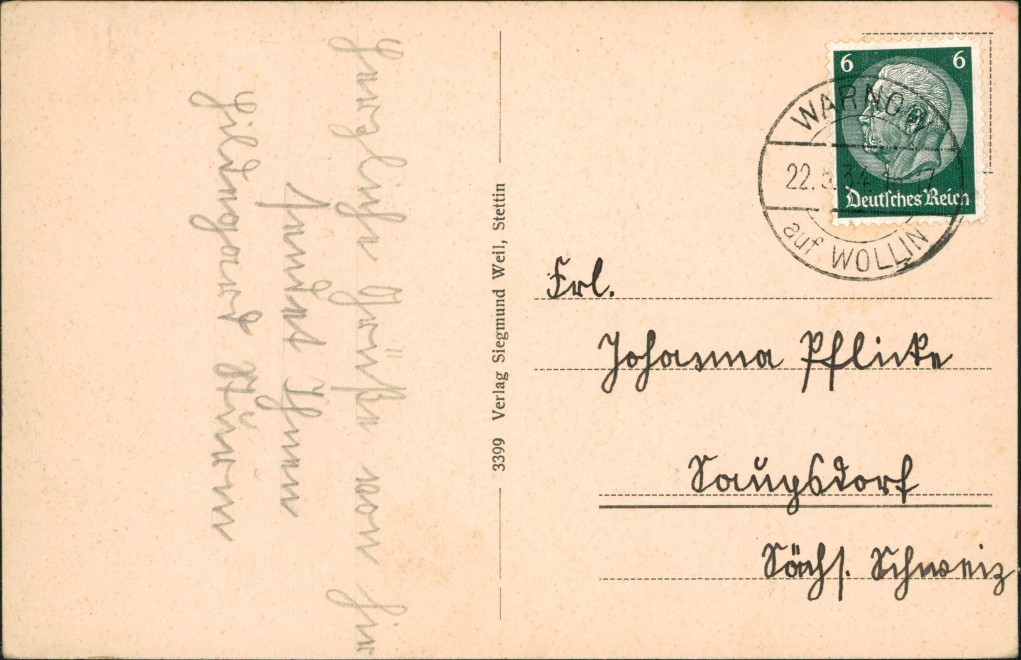 Herzliche Grüße von hier
sendet Ihnen
Hildegard Sturm
3399 Verlag Siegmund Weil, Stettin
6 6
Deutsches Reich
WARNOW
22.5.34
auf WOLLIN
Frl.
Johanna Pflicke
Saupsdorf
Sächs. Schweiz